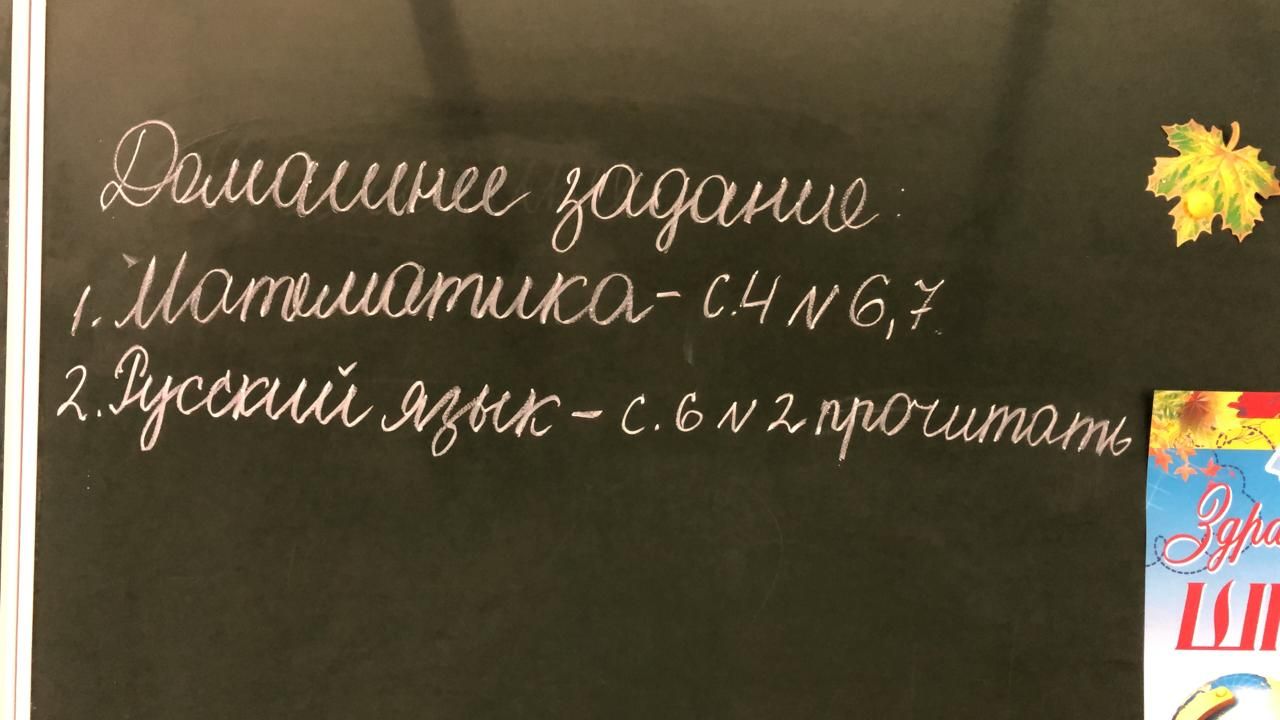 Домашнее задание:
1. Математика - с.4 N 6,7
2. Русский язык - с. 6 N 2 прочитать
Здра